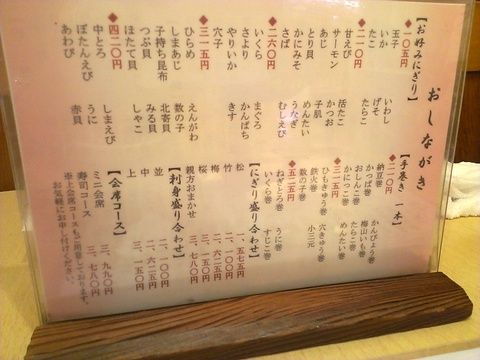 おしながき
【お好みにぎり】
◆一〇五円
玉子
いか　いわし
たこ　げそ
たらこ
◆二一〇円
甘えび
サーモン　活たこ
あじ　かつお
とり貝　子肌
かにみそ　めんたい
さば　うなぎ
むしえび
◆二六〇円
いくら　まぐろ
さより　かんぱち
やりいか　きす
穴子
◆三一五円
ひらめ　えんがわ
しまあじ　数の子
子持ち昆布　北寄貝
つぶ貝　みる貝
ほたて貝　しゃこ
◆四二〇円
中とろ　しまえび
ぼたんえび　うに
あわび　赤貝
【手巻き　一本】
◆二一〇円
納豆巻　かんぴょう巻
かっぱ巻　梅山いも巻
おしんこ巻　たらこ巻
かにっこ巻　めんたい巻
◆三一五円
ひもきゅう巻　穴きゅう巻
鉄火巻　小三元
数の子巻
◆五二五円
ねぎとろ巻　うに巻
いくら巻　すじこ巻
【にぎり盛り合わせ】
松　一、五七五円
竹　二、一〇〇円
梅　二、六二五円
桜　三、一五〇円
親方おまかせ　三、七八〇円
【刺身盛り合わせ】
並　二、一〇〇円
中　二、六二五円
上　三、一五〇円
【会席コース】
ミニ会席　三、九九〇円
寿司コース　三、七八〇円
※上会席コースもご用意しております。
お気軽にお申し付けください。